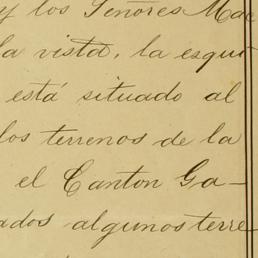 y los Señores Mac
la vista, la esqui
está situado al
los terrenos de la
el Canton Ga-
ados algunos terre